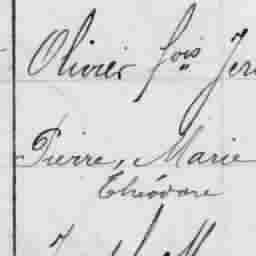 Olivier fois Jer
Pierre, Marie
Théodore